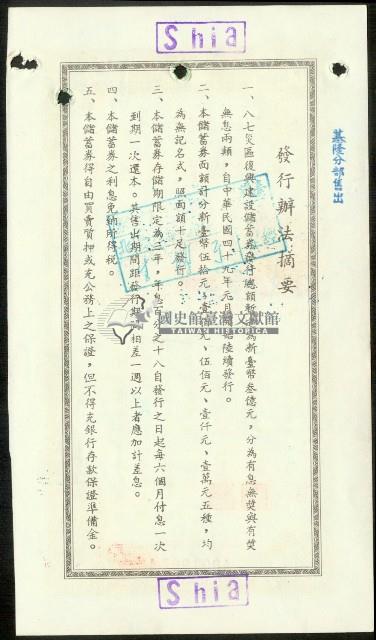 Shia
基隆分部售出
發行辦法摘要
一、八七災區復興建設儲蓄券發行總額暫定為新臺幣叁億元，分為有息無獎與有獎
無息兩類，自中華民國四十九年元月開始陸續發行。
二、本儲蓄券面額計分新臺幣伍拾元、壹佰元、伍佰元、壹仟元、壹萬元五種，均
為無記名式，照面額十足發行。
三、本儲蓄券存儲期限定為二年，年息百分之十八自發行之日起每六個月付息一次
到期一次還本。其售出期間距發行期相差一週以上者應加計差息。
四、本儲蓄券之利息免納所得稅。
五、本儲蓄券得自由買賣質押或充公務上之保證，但不得充銀行存款保證準備金。
國史館臺灣文獻館
TAIWAN HISTORICA
Shia